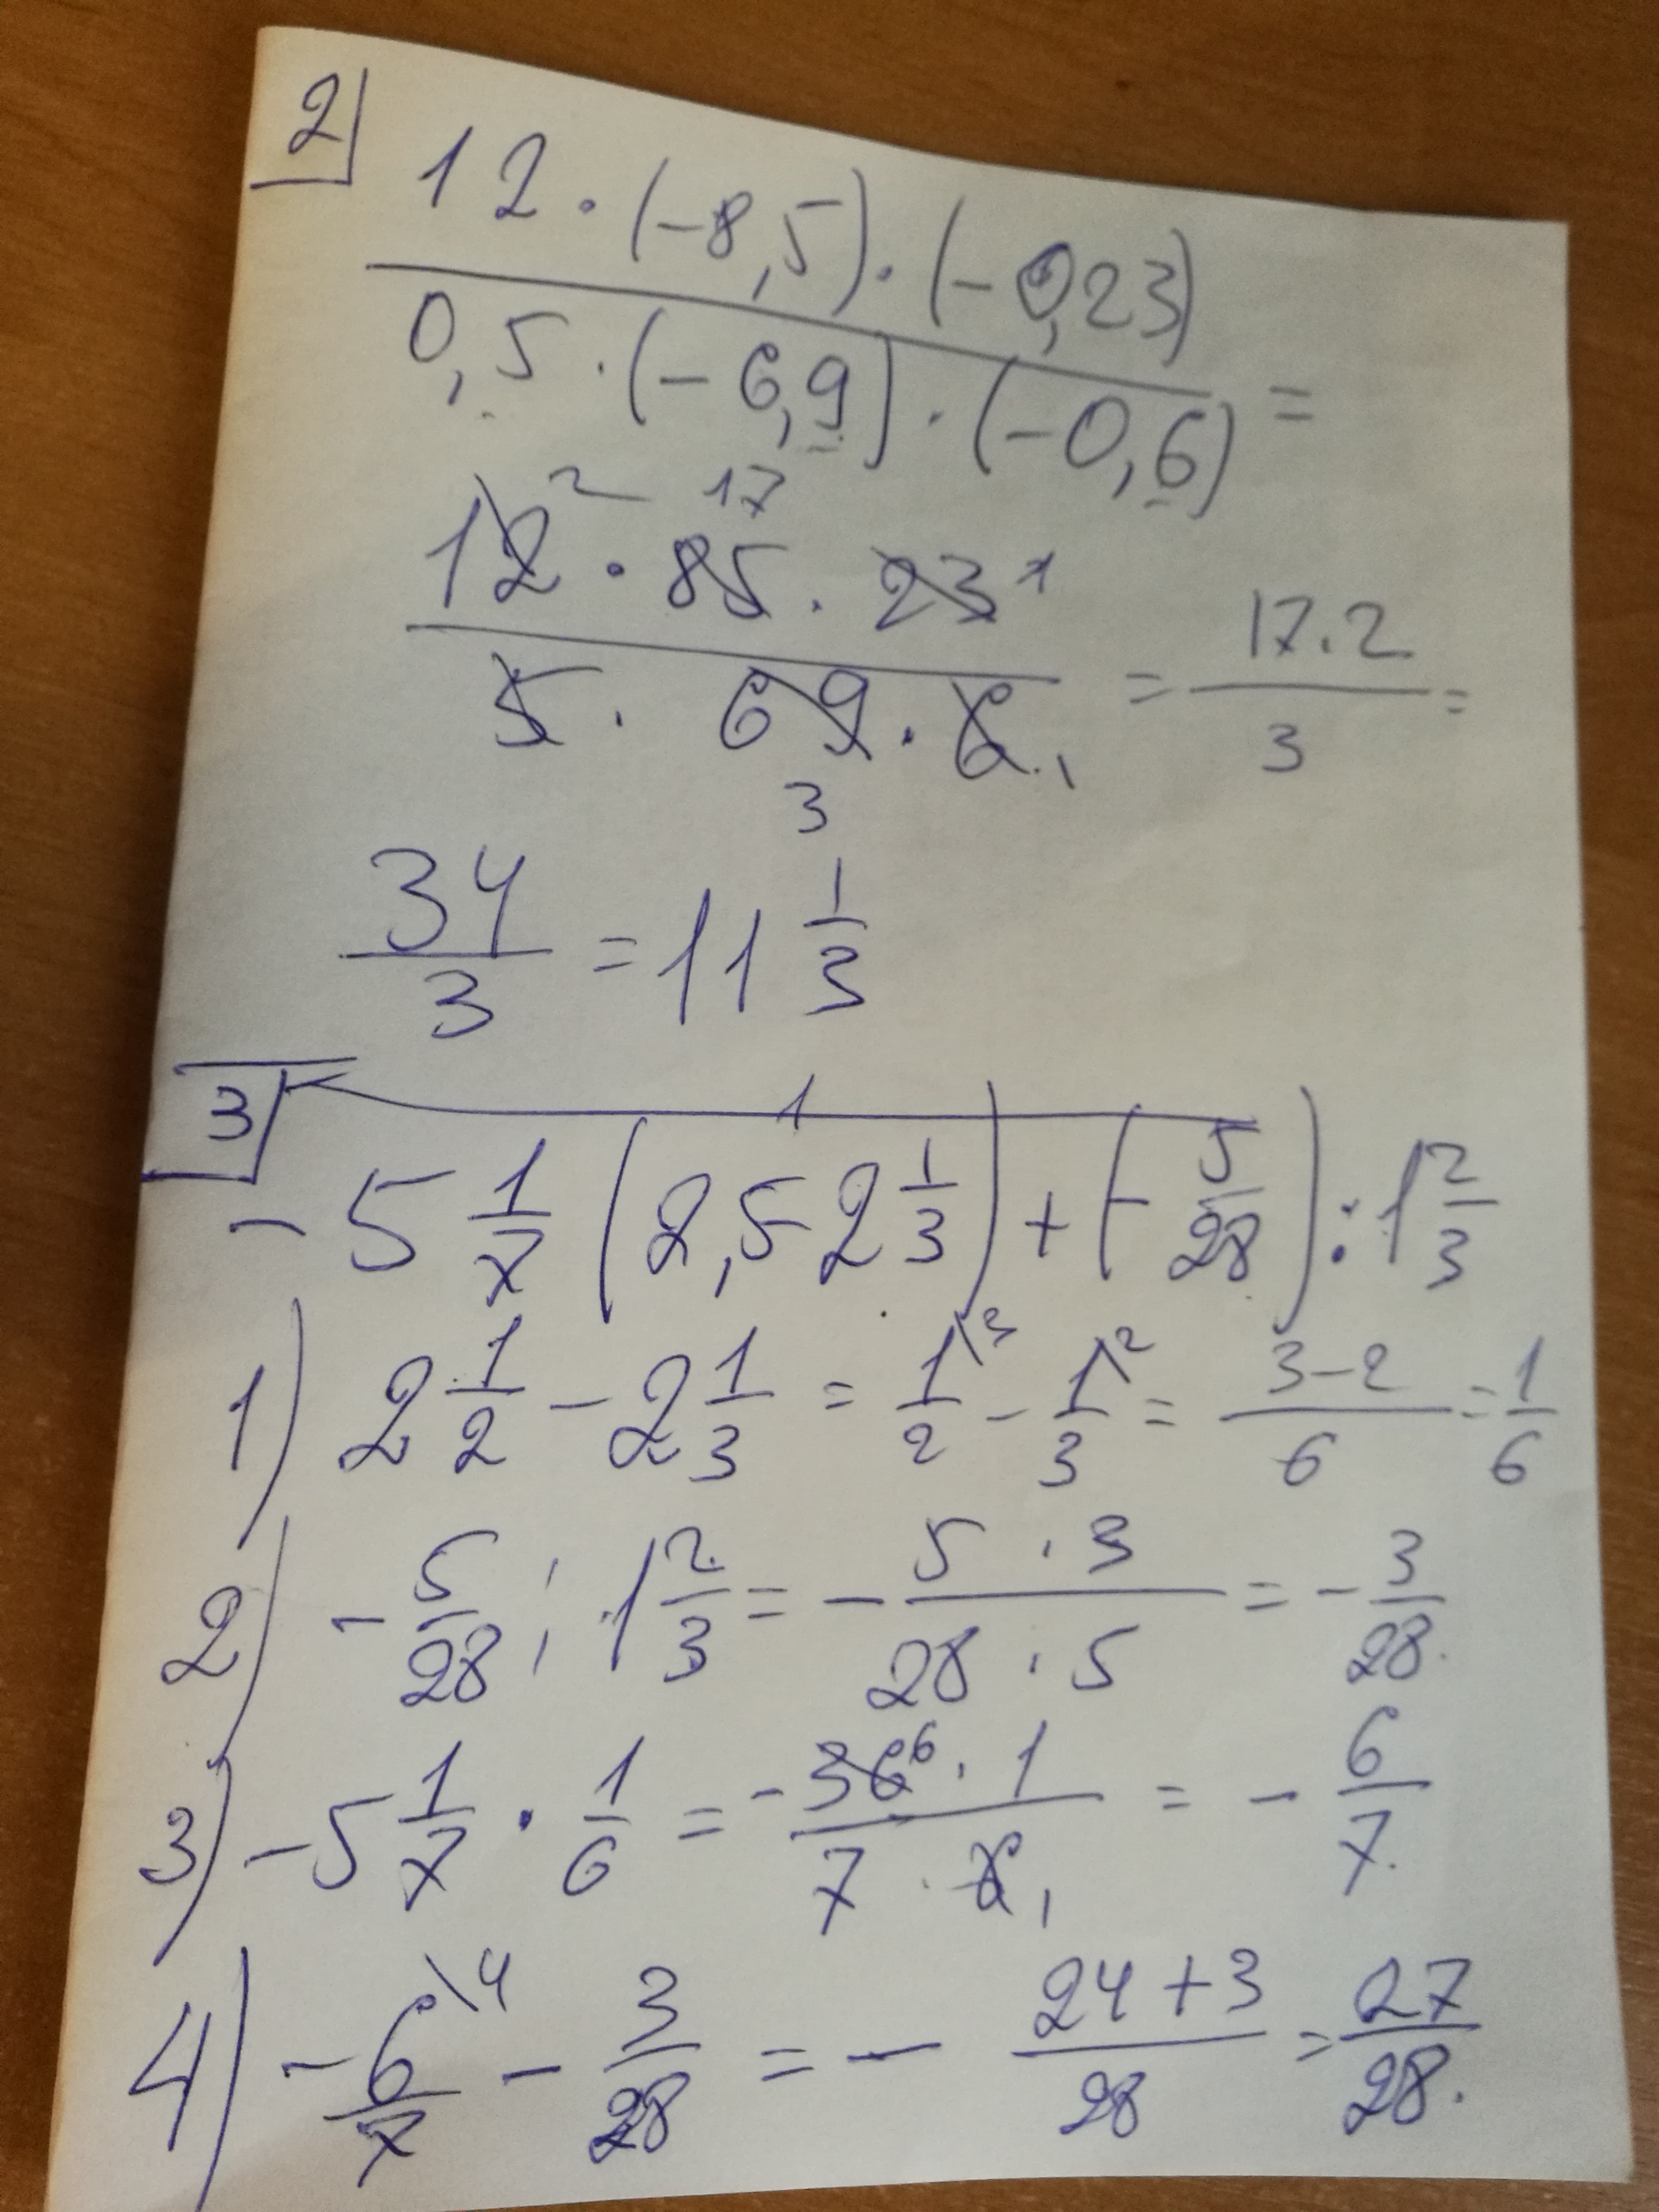 2
12 · (-8,5) · (-0,23)
0,5 · (-6,9) · (-0,6) =
12² · 85 17 · 23 1
5 · 69 · 6 1 = 17.2/3 =
3
34/3 = 11 1/3
3
1
-5 1/7 (2,5 2 1/3) + (-5/28) : 1 2/3
1) 2 1/2 - 2 1/3 = 1/2 \3 - 1/3 \2 = 3-2/6 = 1/6
2) -5/28 : 1 2/3 = - 5 · 3/28 · 5 = - 3/28
3) -5 1/7 · 1/6 = -36 6 · 1/7 · 6 1 = - 6/7
4) -6/7 \4 - 3/28 = - 24+3/28 = 27/28.